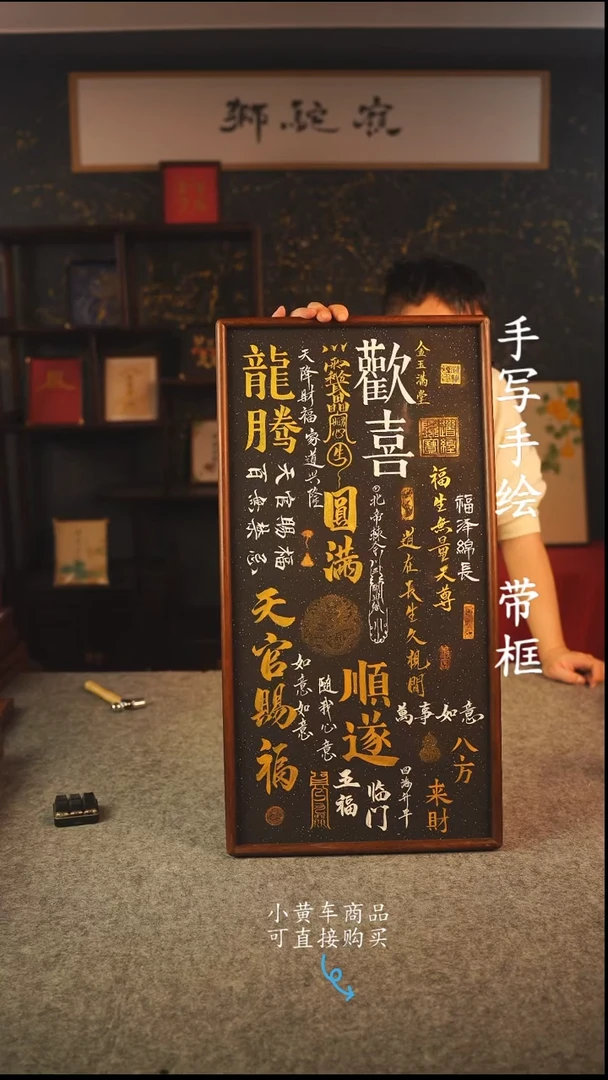 獅駝寂
手写手绘 带框
龍腾
天降財福 家道兴隆
歡喜
金玉满堂
圓满
福生無量天尊
福泽綿長
道在長生久視間
天官賜福
百無禁忌
天官賜福
如意如意
隨我心意
順遂
萬事如意
八方
来財
五福
临门
四海升平
小黄车商品
可直接购买